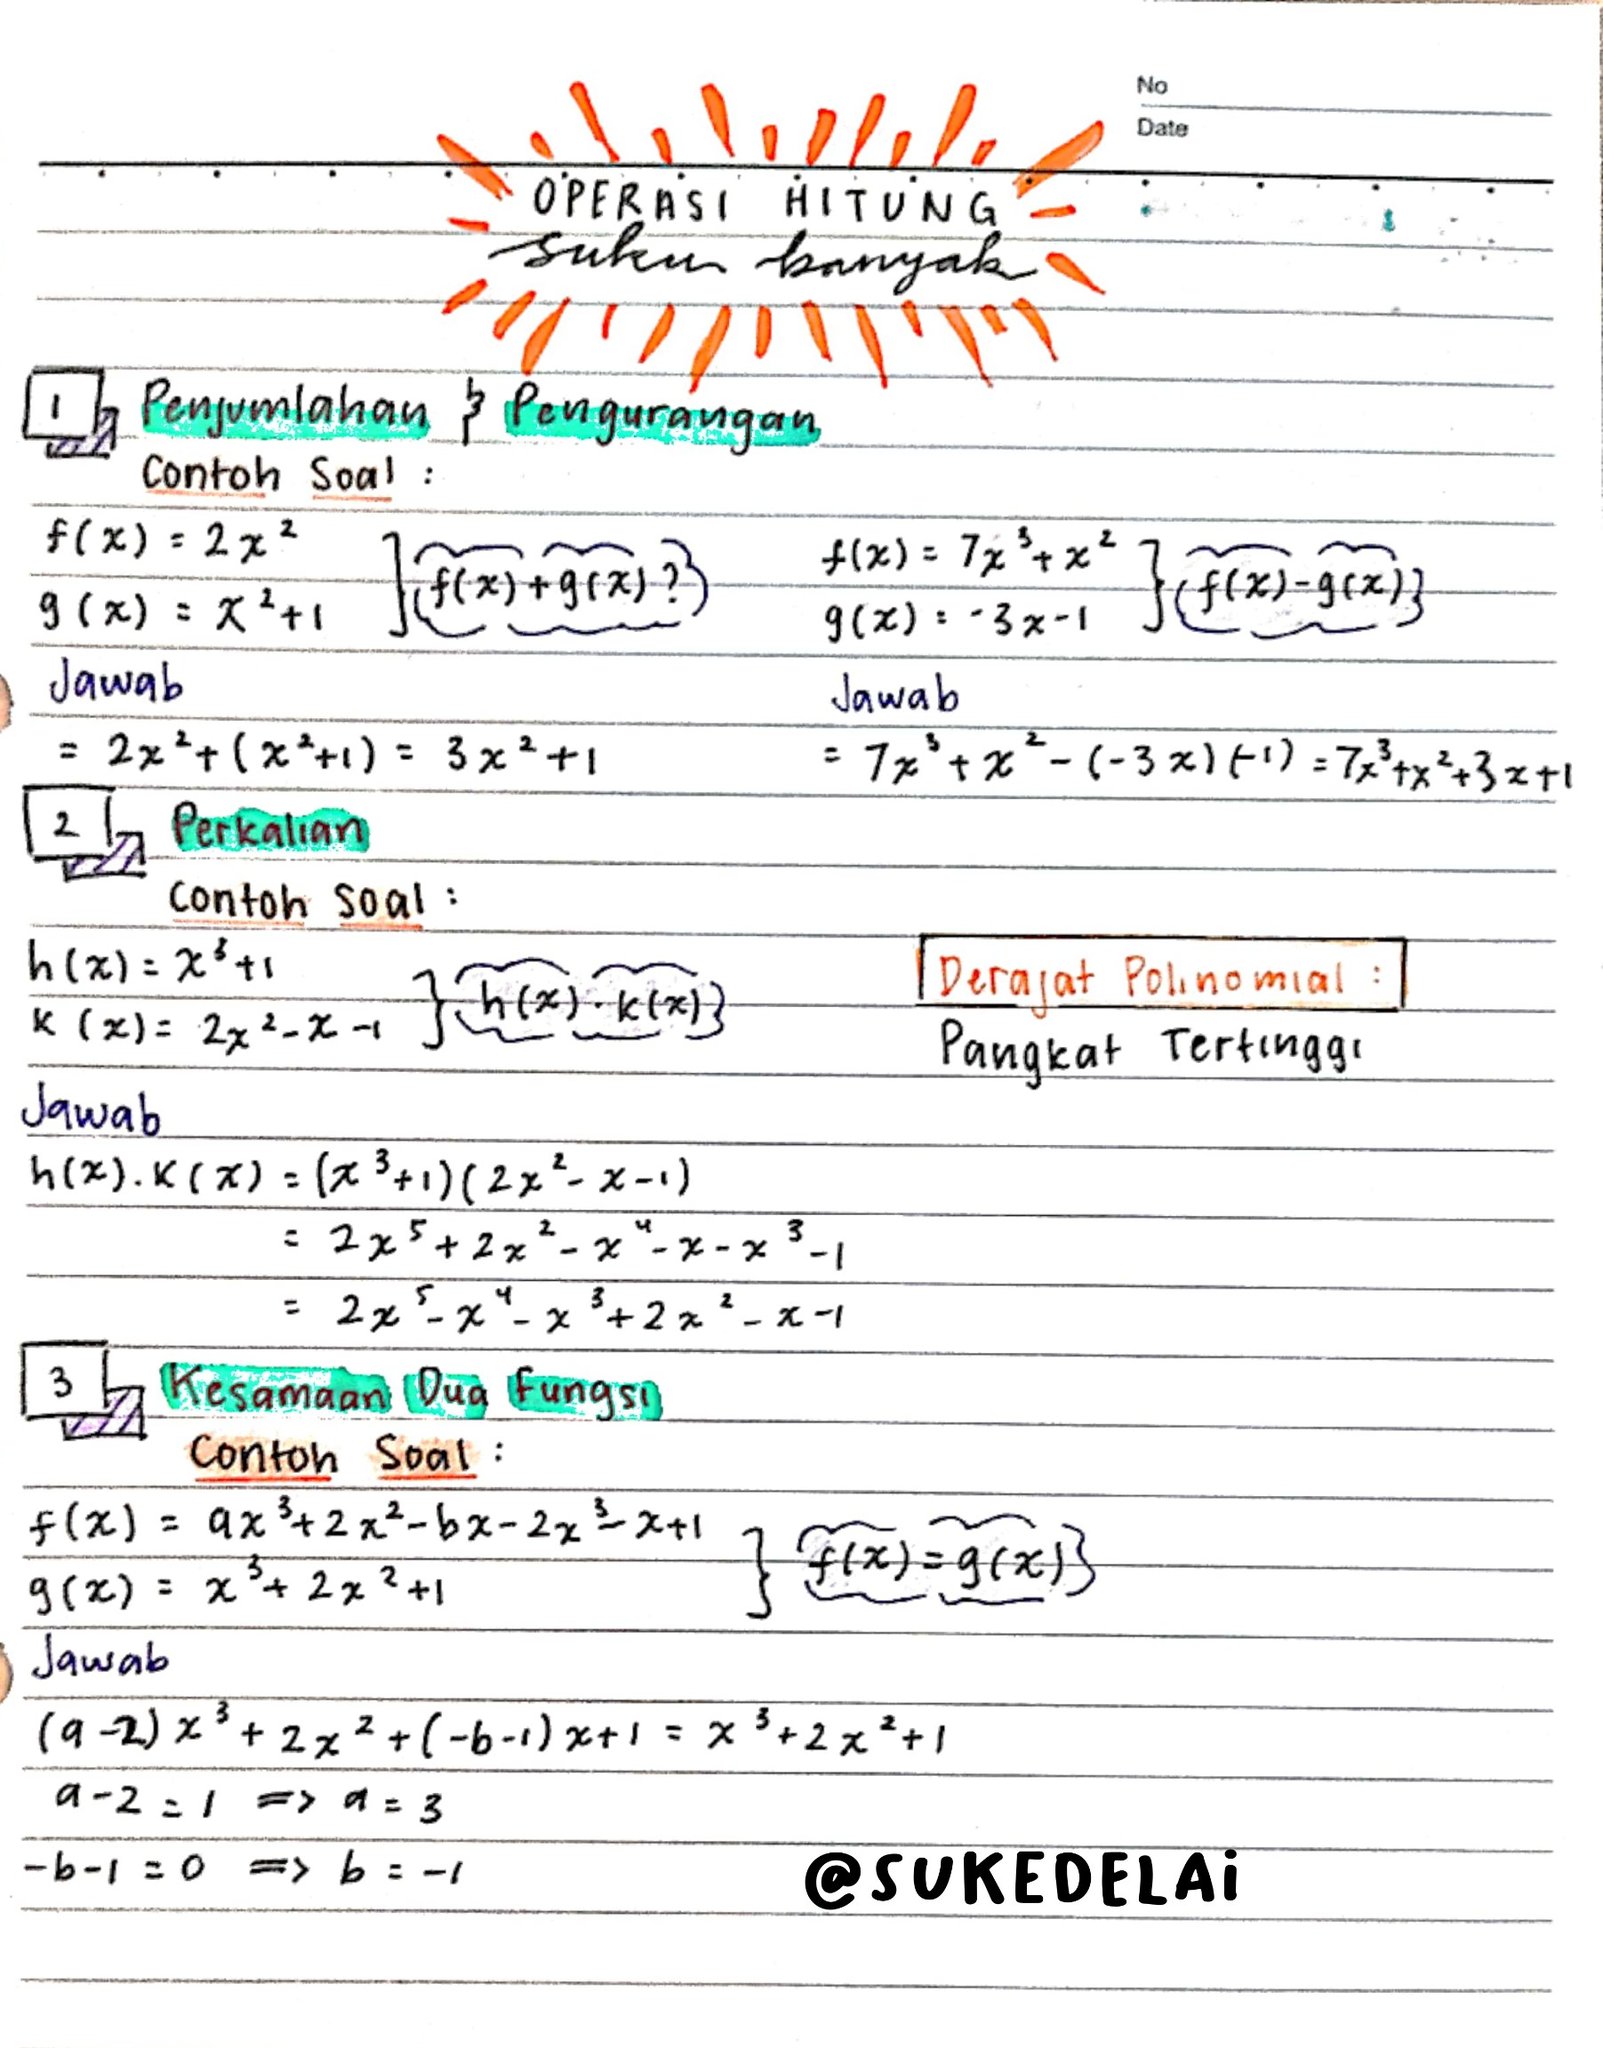 No
Date
OPERASI HITUNG
suku banyak
1 Penjumlahan & Pengurangan
Contoh Soal :
f(x) = 2x²
g(x) = x²+1
f(x)+g(x)?
Jawab
= 2x²+(x²+1) = 3x²+1
f(x) = 7x³+x²
g(x) = -3x-1
f(x)-g(x)
Jawab
= 7x³+x²-(-3x)(-1) = 7x³+x²+3x+1
2 Perkalian
Contoh Soal :
h(x) = x³+1
k(x) = 2x²-x-1
h(x).k(x)
Derajat Polinomial :
Pangkat Tertinggi
Jawab
h(x).k(x) = (x³+1)(2x²-x-1)
= 2x⁵+2x²-x⁴-x-x³-1
= 2x⁵-x⁴-x³+2x²-x-1
3 Kesamaan Dua Fungsi
Contoh Soal :
f(x) = ax³+2x²-bx-2x³-x+1
g(x) = x³+2x²+1
f(x)=g(x)
Jawab
(a-2)x³+2x²+(-b-1)x+1 = x³+2x²+1
a-2=1 => a=3
-b-1=0 => b=-1
@SUKEDELAi